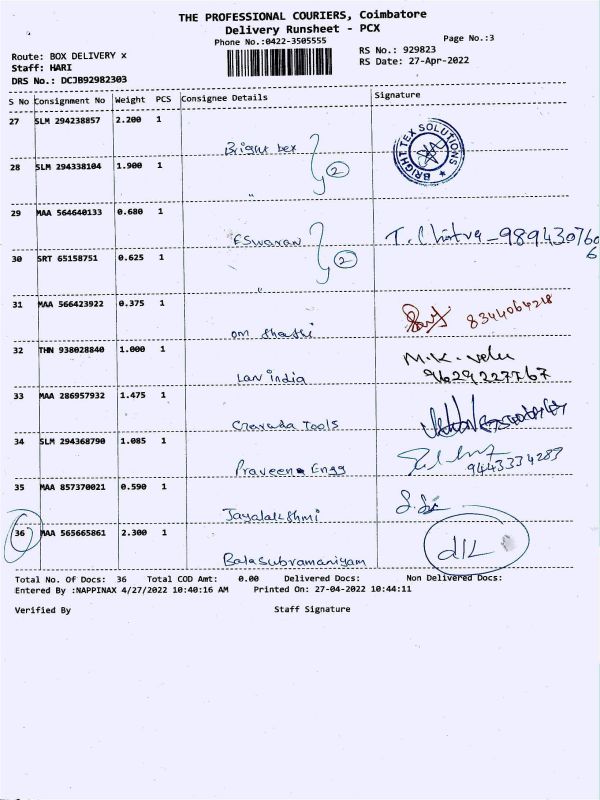 THE PROFESSIONAL COURIERS, Coimbatore
Delivery Runsheet - PCX
Phone No.:0422-3505555
Page No.:3
Route: BOX DELIVERY x
RS No.: 929823
Staff: HARI
RS Date: 27-Apr-2022
DRS No.: DCJB92982303
S No Consignment No Weight PCS Consignee Details Signature
27 SLM 294238857 2.200 1
Bright tex
BRIGHT TEX SOLUTIONS
28 SLM 294338104 1.900 1
2
"
29 MAA 564640133 0.680 1
ESwaran T. Chitra - 9894307606
30 SRT 65158751 0.625 1
2
"
31 MAA 566423922 0.375 1
om Shakti 8344064218
32 THN 938028840 1.000 1
M.K. Velu
Lan india 9629227767
33 MAA 286957932 1.475 1
Tools
34 SLM 294368790 1.085 1
Praveena Engg 9443334283
35 MAA 857370021 0.590 1
Jayalakshmi
36 MAA 565665861 2.300 1
Balasubramaniyam d/L
Total No. Of Docs: 36 Total COD Amt: 0.00 Delivered Docs: Non Delivered Docs:
Entered By :NAPPINAX 4/27/2022 10:40:16 AM Printed On: 27-04-2022 10:44:11
Verified By Staff Signature